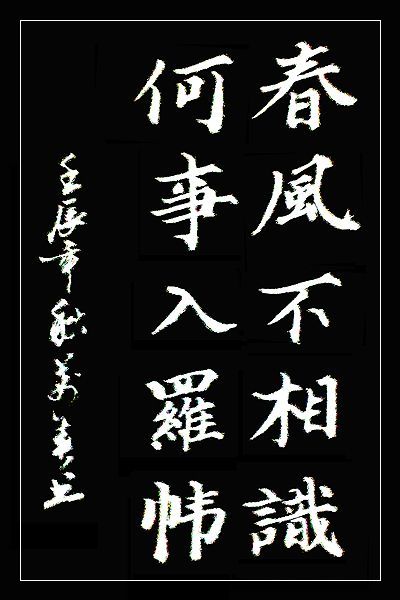 春風不相識
何事入羅幃
壬辰年秋